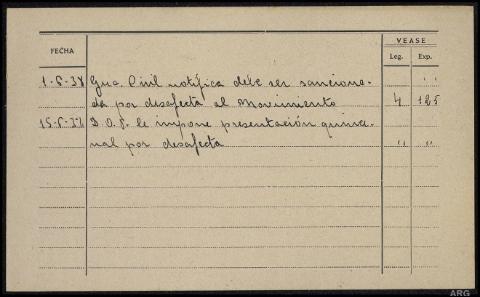 VEASE
FECHA
Leg. Exp.
1-6-38 Gua. Civil notifica debe ser sanciona- " "
da por desafecta al Movimiento 4 125
15-6-38 D.O.P. le impone presentación quince-
nal por desafecta " "
ARG